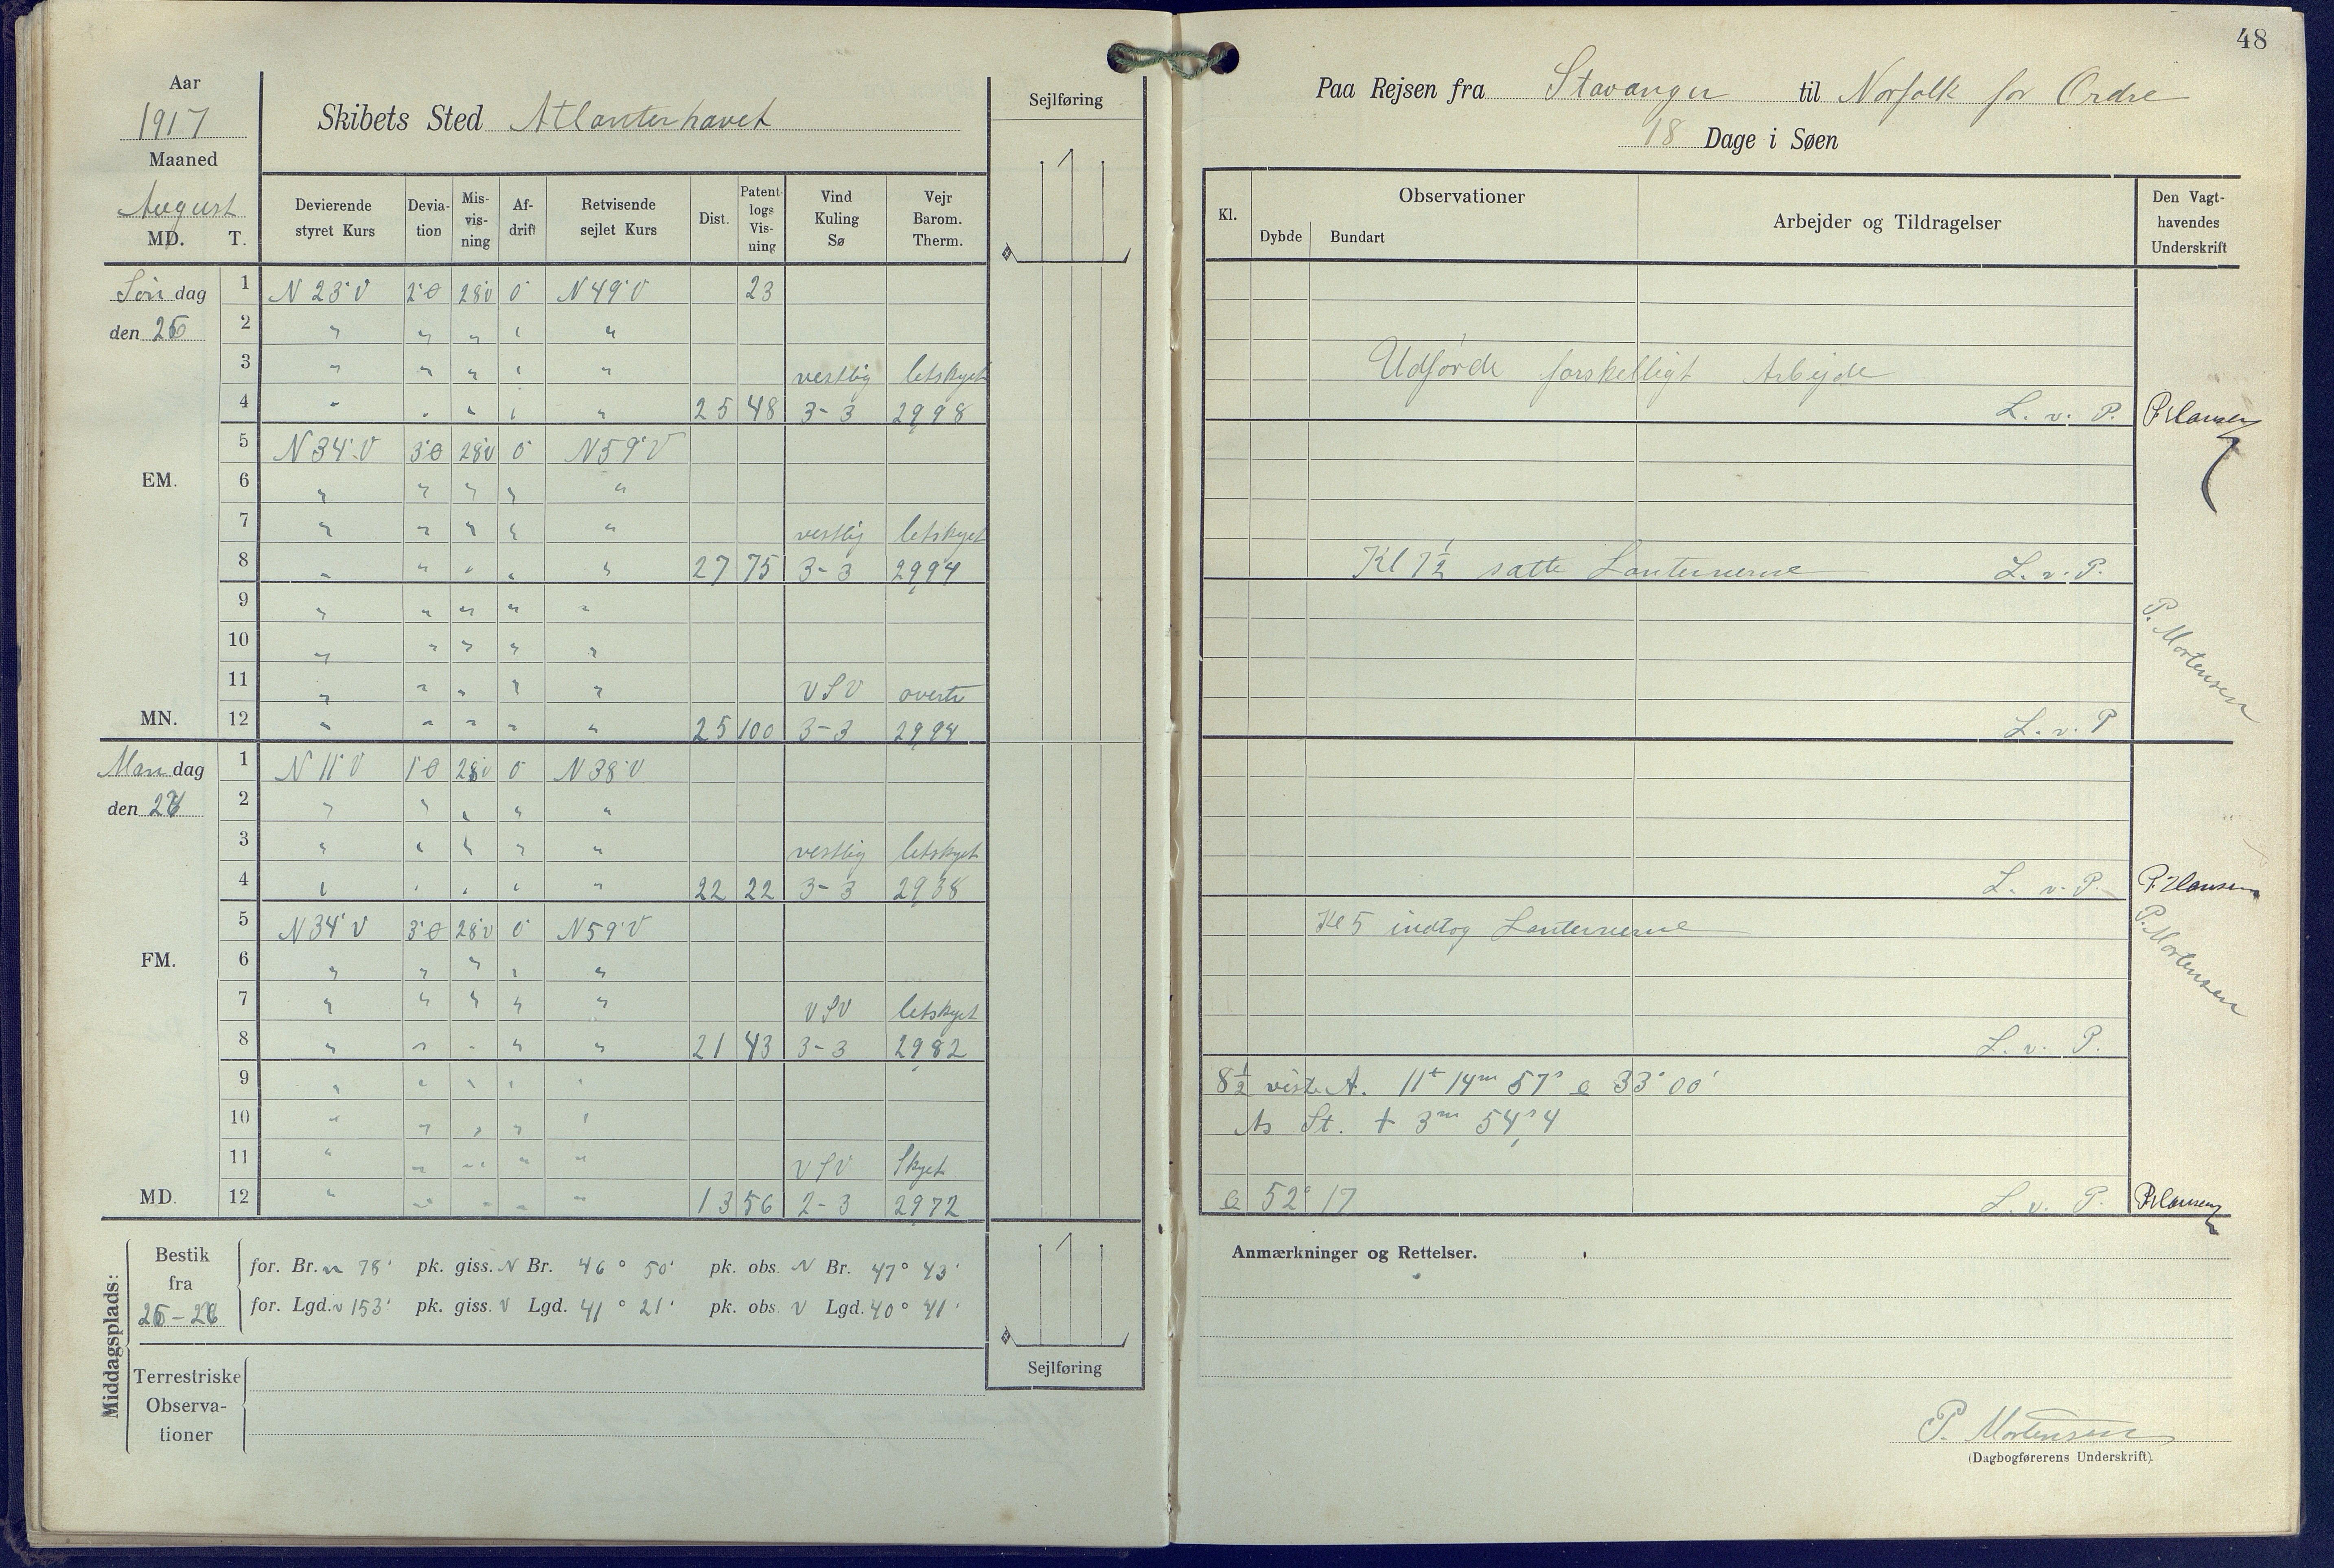 48
Aar
1917
Maaned
August
MD. T.
Skibets Sted Atlanterhavet
Sejlføring
Devierende styret Kurs
Deviation
Misvisning
Afdrift
Retvisende sejlet Kurs
Dist.
Patentlogs Visning
Vind Kuling Sø
Vejr Barom. Therm.
Søn dag
den 26
1 N 23° V 2° Ø 28 V 0° N 49° V 23
2 " " " " "
3 " " " " " vestlig letskyet
4 " " " " " 25 48 3-3 29,98
5 N 34° V 3° Ø 28 V 0° N 59° V
EM. 6 " " " " "
7 " " " " " vestlig letskyet
8 " " " " " 27 75 3-3 29,94
9 " " " " "
10 " " " " "
11 " " " " " VSV overtr
MN. 12 " " " " " 25 100 3-3 29,94
Man dag
den 27
1 N 11° V 1° Ø 28 V 0° N 38° V
2 " " " " "
3 " " " " " vestlig letskyet
4 " " " " " 22 22 3-3 29,88
5 N 34° V 3° Ø 28 V 0° N 59° V
FM. 6 " " " " "
7 " " " " " VSV letskyet
8 " " " " " 21 43 3-3 29,82
9 " " " " "
10 " " " " "
11 " " " " " VSV Skyet
MD. 12 " " " " " 13 56 2-3 29,72
Middagsplads:
Bestik
fra
26-27
for. Br. n 78' pk. giss. N Br. 46° 50' pk. obs. N Br. 47° 43'
for. Lgd. v 153' pk. giss. V Lgd. 41° 21' pk. obs. V Lgd. 40° 41'
Sejlføring
Terrestriske
Observa-
tioner
Paa Rejsen fra Stavanger til Norfolk for Ordre
18 Dage i Søen
Kl.
Observationer
Dybde Bundart
Arbejder og Tildragelser
Den Vagt-
havendes
Underskrift
Udførde forskelligt Arbejde
L. v. P. P Hansen
Kl 7½ satte Lanternerne L. v. P.
P. Mortensen
L. v. P
L. v. P. P Hansen
Kl 5 indtog Lanternerne
P. Mortensen
L. v. P.
8½ viste A. 11t 14m 57s 33° 00'
As St. + 3m 54s,4
52° 17 L. v. P. P Hansen
Anmærkninger og Rettelser.
P. Mortensen
(Dagbogførerens Underskrift).